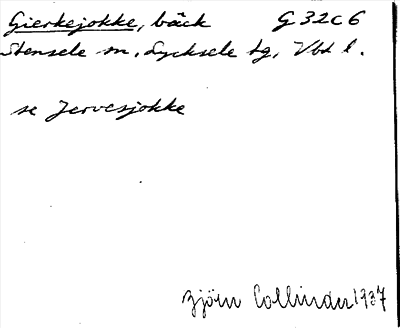 Gierkejokke, bäck G 32 c 6
Stensele sn, Lycksele tg, Vbt l.
se Jervesjokke
Björn Collinder 1937